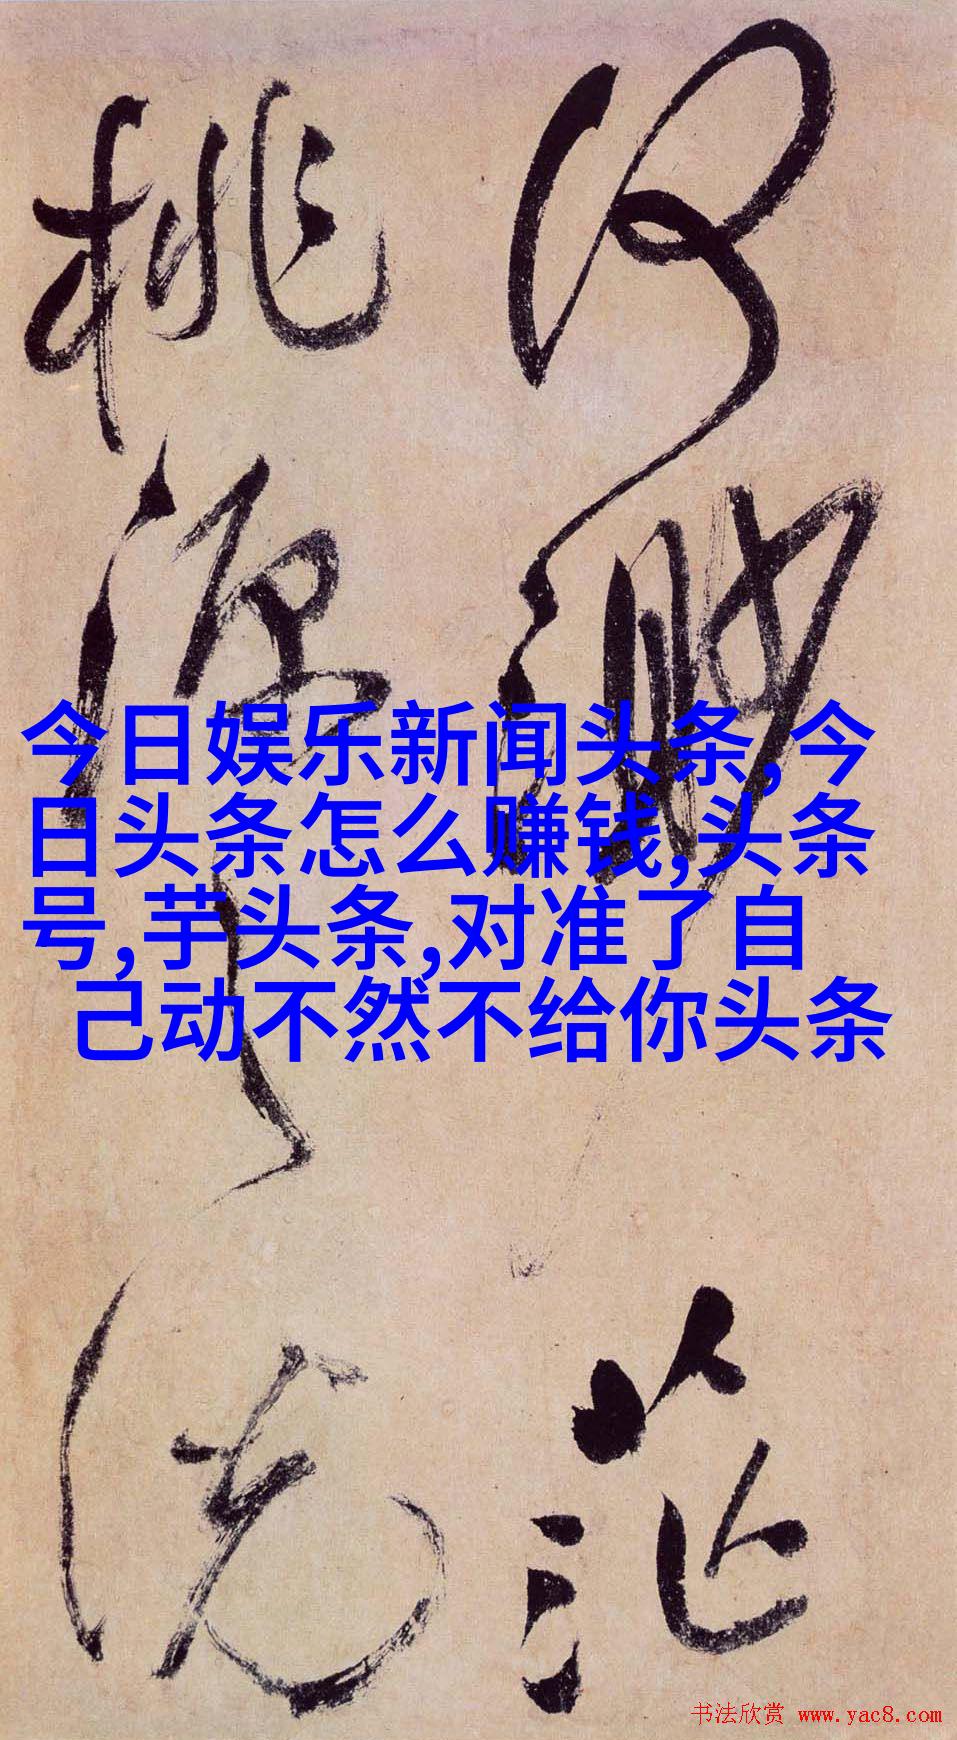 何渺茫
桃源之說
今日娱乐新闻头条,今
日头条怎么赚钱,头条
号,芋头条,对准了自
己动不然不给你头条
书法欣赏 www.yac8.com